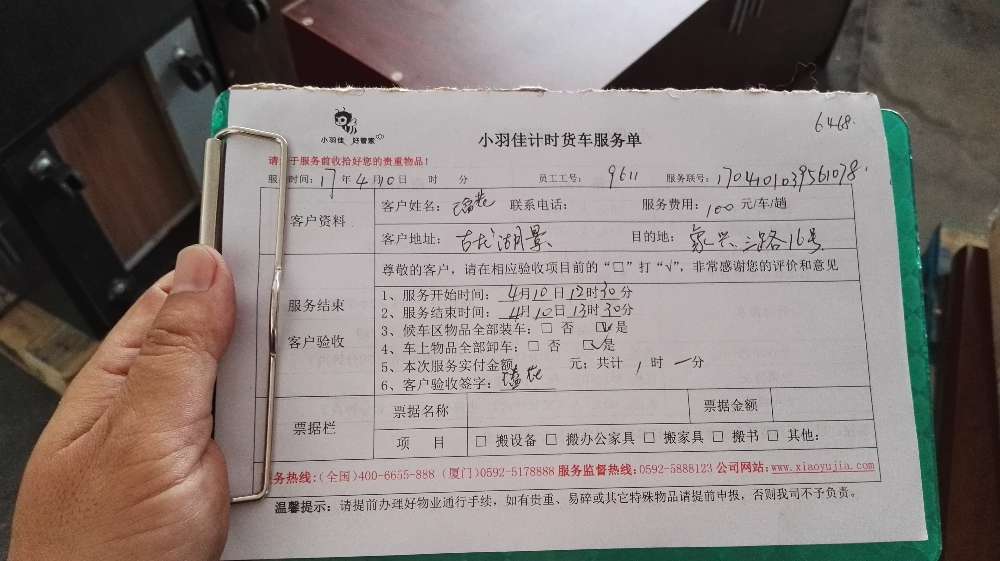 6468.
小羽佳 好管家
小羽佳计时货车服务单
请 于服务前收拾好您的贵重物品！
服 时间：17年4月10日 时 分 员工工号： 9611 服务联号：1704101039561078.
客户资料 客户姓名： 联系电话： 服务费用：100 元/车/趟
客户地址：古龙湖景 目的地： 三路16号
尊敬的客户，请在相应验收项目前的“□”打“√”，非常感谢您的评价和意见
服务结束
客户验收
1、服务开始时间：4月10日12时30分
2、服务结束时间：4月10日13时30分
3、候车区物品全部装车：□ 否 ☑是
4、车上物品全部卸车：□ 否 ☑是
5、本次服务实付金额 元；共计 1 时 一分
6、客户验收签字：
票据栏 票据名称 票据金额
项 目 □ 搬设备 □ 搬办公家具 □ 搬家具 □ 搬书 □ 其他：
务热线：(全国)400-6655-888 (厦门)0592-5178888 服务监督热线：0592-5888123 公司网站：www.xiaoyujia.com
温馨提示：请提前办理好物业通行手续，如有贵重、易碎或其它特殊物品请提前申报，否则我司不予负责。